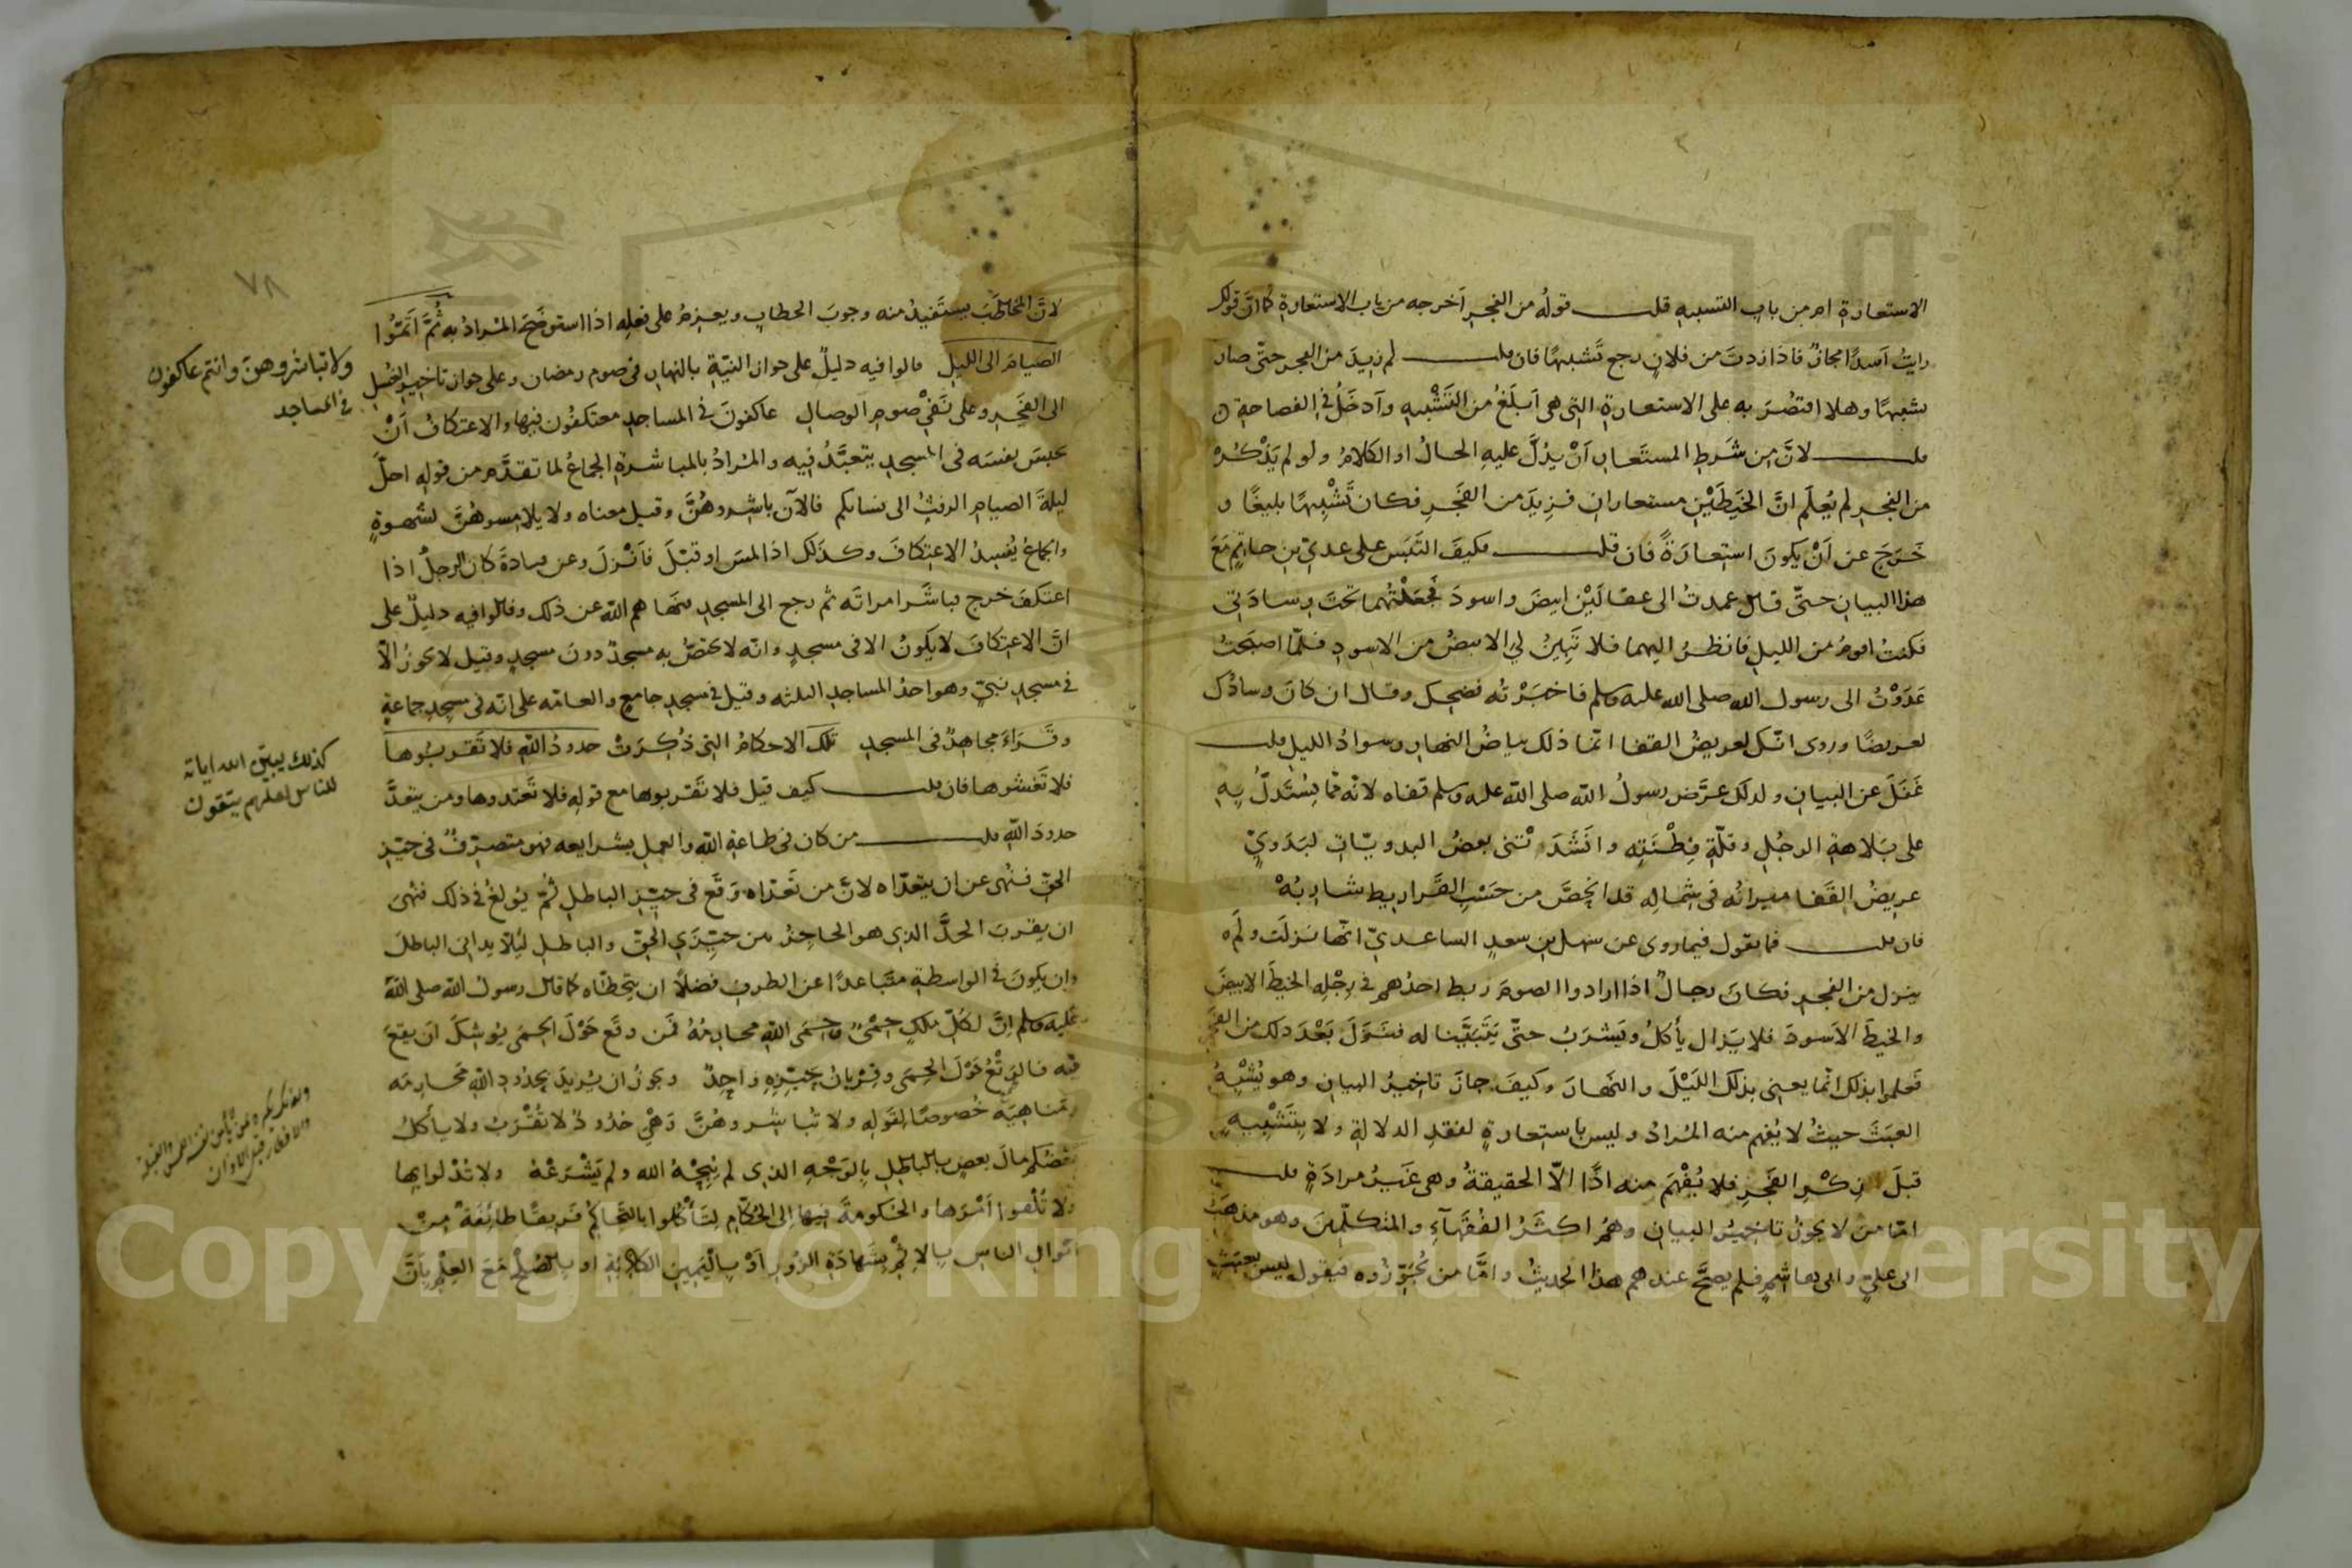 الاستعارة ام من باب التشبيه قلت قوله من الفجر اخرجه من باب الاستعارة كما ان قولك
رايت اسدًا مجاز فاذا زدت من فلان رجع تشبيهًا فان قلت لم زيد من الفجر حتى صار
تشبيهًا وهلا اقتصر به على الاستعارة التى هى ابلغ من التشبيه وادخل فى الفصاحة
قلت لان من شرط المستعار ان يدل عليه الحال او الكلام ولو لم يذكر
من الفجر لم يعلم ان الخيطين مستعاران فزيد من الفجر فكان تشبيهًا بليغًا و
خرج عن ان يكون استعارة فان قلت فكيف التبس على عدى بن حاتم مع
هذا البيان حتى قال عمدت الى عقالين ابيض واسود فجعلتهما تحت وسادتى
فكنت اقوم من الليل فانظر اليهما فلا تبين لي الابيض من الاسود فلما اصبحت
غدوت الى رسول الله صلى الله عليه وسلم فاخبرته فضحك وقال ان كان وسادك
لعريضًا وروى انك لعريض القفا انما ذلك بياض النهار وسواد الليل قلت
غفل عن البيان ولذلك عرض رسول الله صلى الله عليه وسلم قفاه لانه مما يستدل به
على بلاهة الرجل وقلة فطنته وانشدتنى بعض البدويات لبدوي
عريض القفا ميزانه فى شماله قد انحص من حسب القراريط شاربه
فان قلت فما تقول فيما روى عن سهل بن سعد الساعدى انها نزلت ولم
ينزل من الفجر فكان رجال اذا ارادوا الصوم ربط احدهم فى رجله الخيط الابيض
والخيط الاسود فلا يزال يأكل ويشرب حتى يتبينا له فنزل بعد ذلك من الفجر
فعلموا بذلك انما يعنى بذلك الليل والنهار وكيف جاز تاخير البيان وهو يشبه
العبث حيث لا يفهم منه المراد وليس باستعارة لفقد الدلالة ولا بتشبيه
قبل ذكر الفجر فلا يفهم منه اذًا الا الحقيقة وهى غير مرادة قلت
اما من لا يجوز تاخير البيان وهم اكثر الفقهاء والمتكلمين وهو مذهب
ابى علي وابى هاشم فلم يصح عندهم هذا الحديث واما من يجوزه فيقول ليس بعبث
٧٨
لان المخاطب يستفيد منه وجوب الخطاب ويعزم على فعله اذا استوضح المراد به ثم اتموا
الصيام الى الليل قالوا فيه دليل على جواز النية بالنهار فى صوم رمضان وعلى جواز تاخير الغسل
الى الفجر وعلى نفى صوم الوصال عاكفون فى المساجد معتكفون فيها والاعتكاف ان
يحبس نفسه فى المسجد يتعبد فيه والمراد بالمباشرة الجماع لما تقدم من قوله احل
ليلة الصيام الرفث الى نسائكم فالآن باشروهن وقيل معناه ولا يلامسوهن بشهوة
والجماع يفسد الاعتكاف وكذلك اذا لمس او قبل فانزل وعن قتادة كان الرجل اذا
اعتكف خرج فباشر امراته ثم رجع الى المسجد فنهاهم الله عن ذلك وقالوا فيه دليل على
ان الاعتكاف لا يكون الا فى مسجد وانه لا يختص به مسجد دون مسجد وقيل لا يجوز الا
فى مسجد نبى وهو احد المساجد الثلثه وقيل فى مسجد جامع والعامة على انه فى مسجد جماعة
وقراء مجاهد فى المسجد تلك الاحكام التى ذكرت حدود الله فلا تقربوها
فلا تغشوها فان قلت كيف قيل فلا تقربوها مع قوله فلا تعتدوها ومن يتعد
حدود الله قلت من كان فى طاعة الله والعمل بشرايعه فهو متصرف فى حيز
الحق فنهى عن ان يتعداه لان من تعداه وقع فى حيز الباطل ثم بولغ فى ذلك فنهى
ان يقرب الحد الذى هو الحاجز بين حيزي الحق والباطل لئلا يدانى الباطل
وان يكون فى الواسطة متباعدًا عن الطرف فضلًا ان يتخطاه كما قال رسول الله صلى الله
عليه وسلم ان لكل ملك حمًى وحمى الله محارمه فمن رتع حول الحمى يوشك ان يقع
فيه فالرتع حول الحمى وقربان حيزه واحد ويجوز ان يريد بحدود الله محارمه
ومناهيه خصوصًا لقوله ولا تباشروهن وهى حدود لا تقرب ولا يأكل
بعضكم مال بعض بالباطل بالوجه الذى لم يبحه الله ولم يشرعه ولا تدلوا بها
ولا تلقوا امرها والحكومة فيها الى الحكام لتأكلوا بالتحاكم فريقًا طائفة من
اموال الناس بالاثم بشهادة الزور او باليمين الكاذبة او بالصلح مع العلم بان
ولا تباشروهن وانتم عاكفون
فى المساجد
كذلك يبين الله اياته
للناس لعلهم يتقون